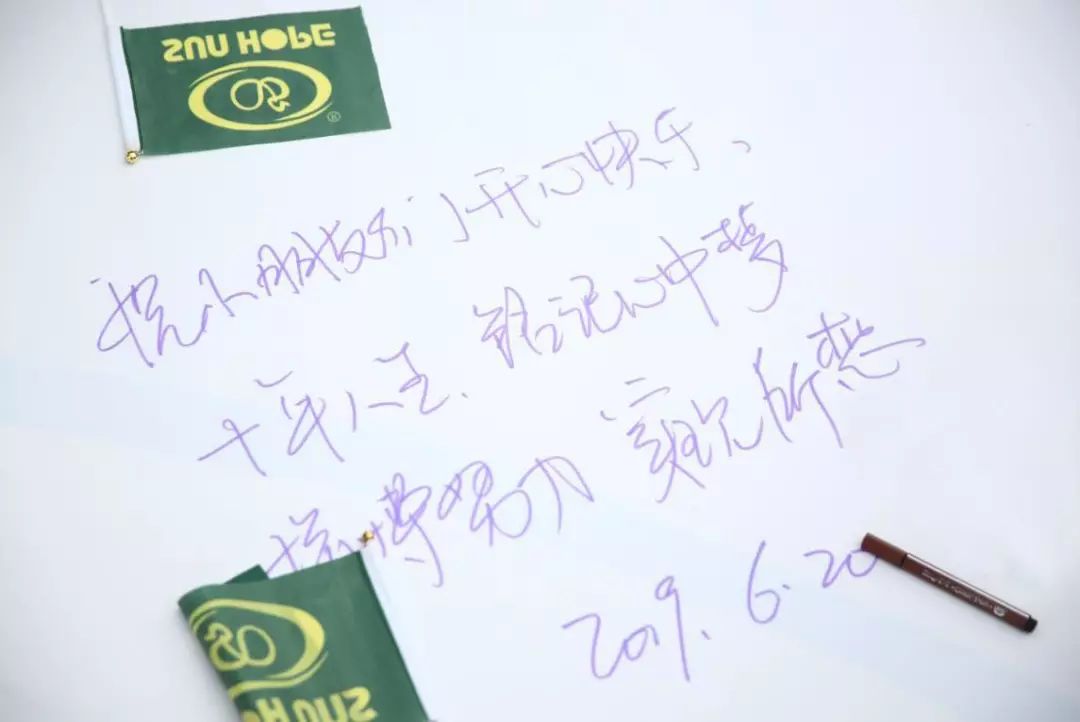 SUN HOPE
®
祝小朋友们开心快乐、
十年人生、铭记心中梦
拼搏努力 实现所想
2019.6.20
SUN HOPE